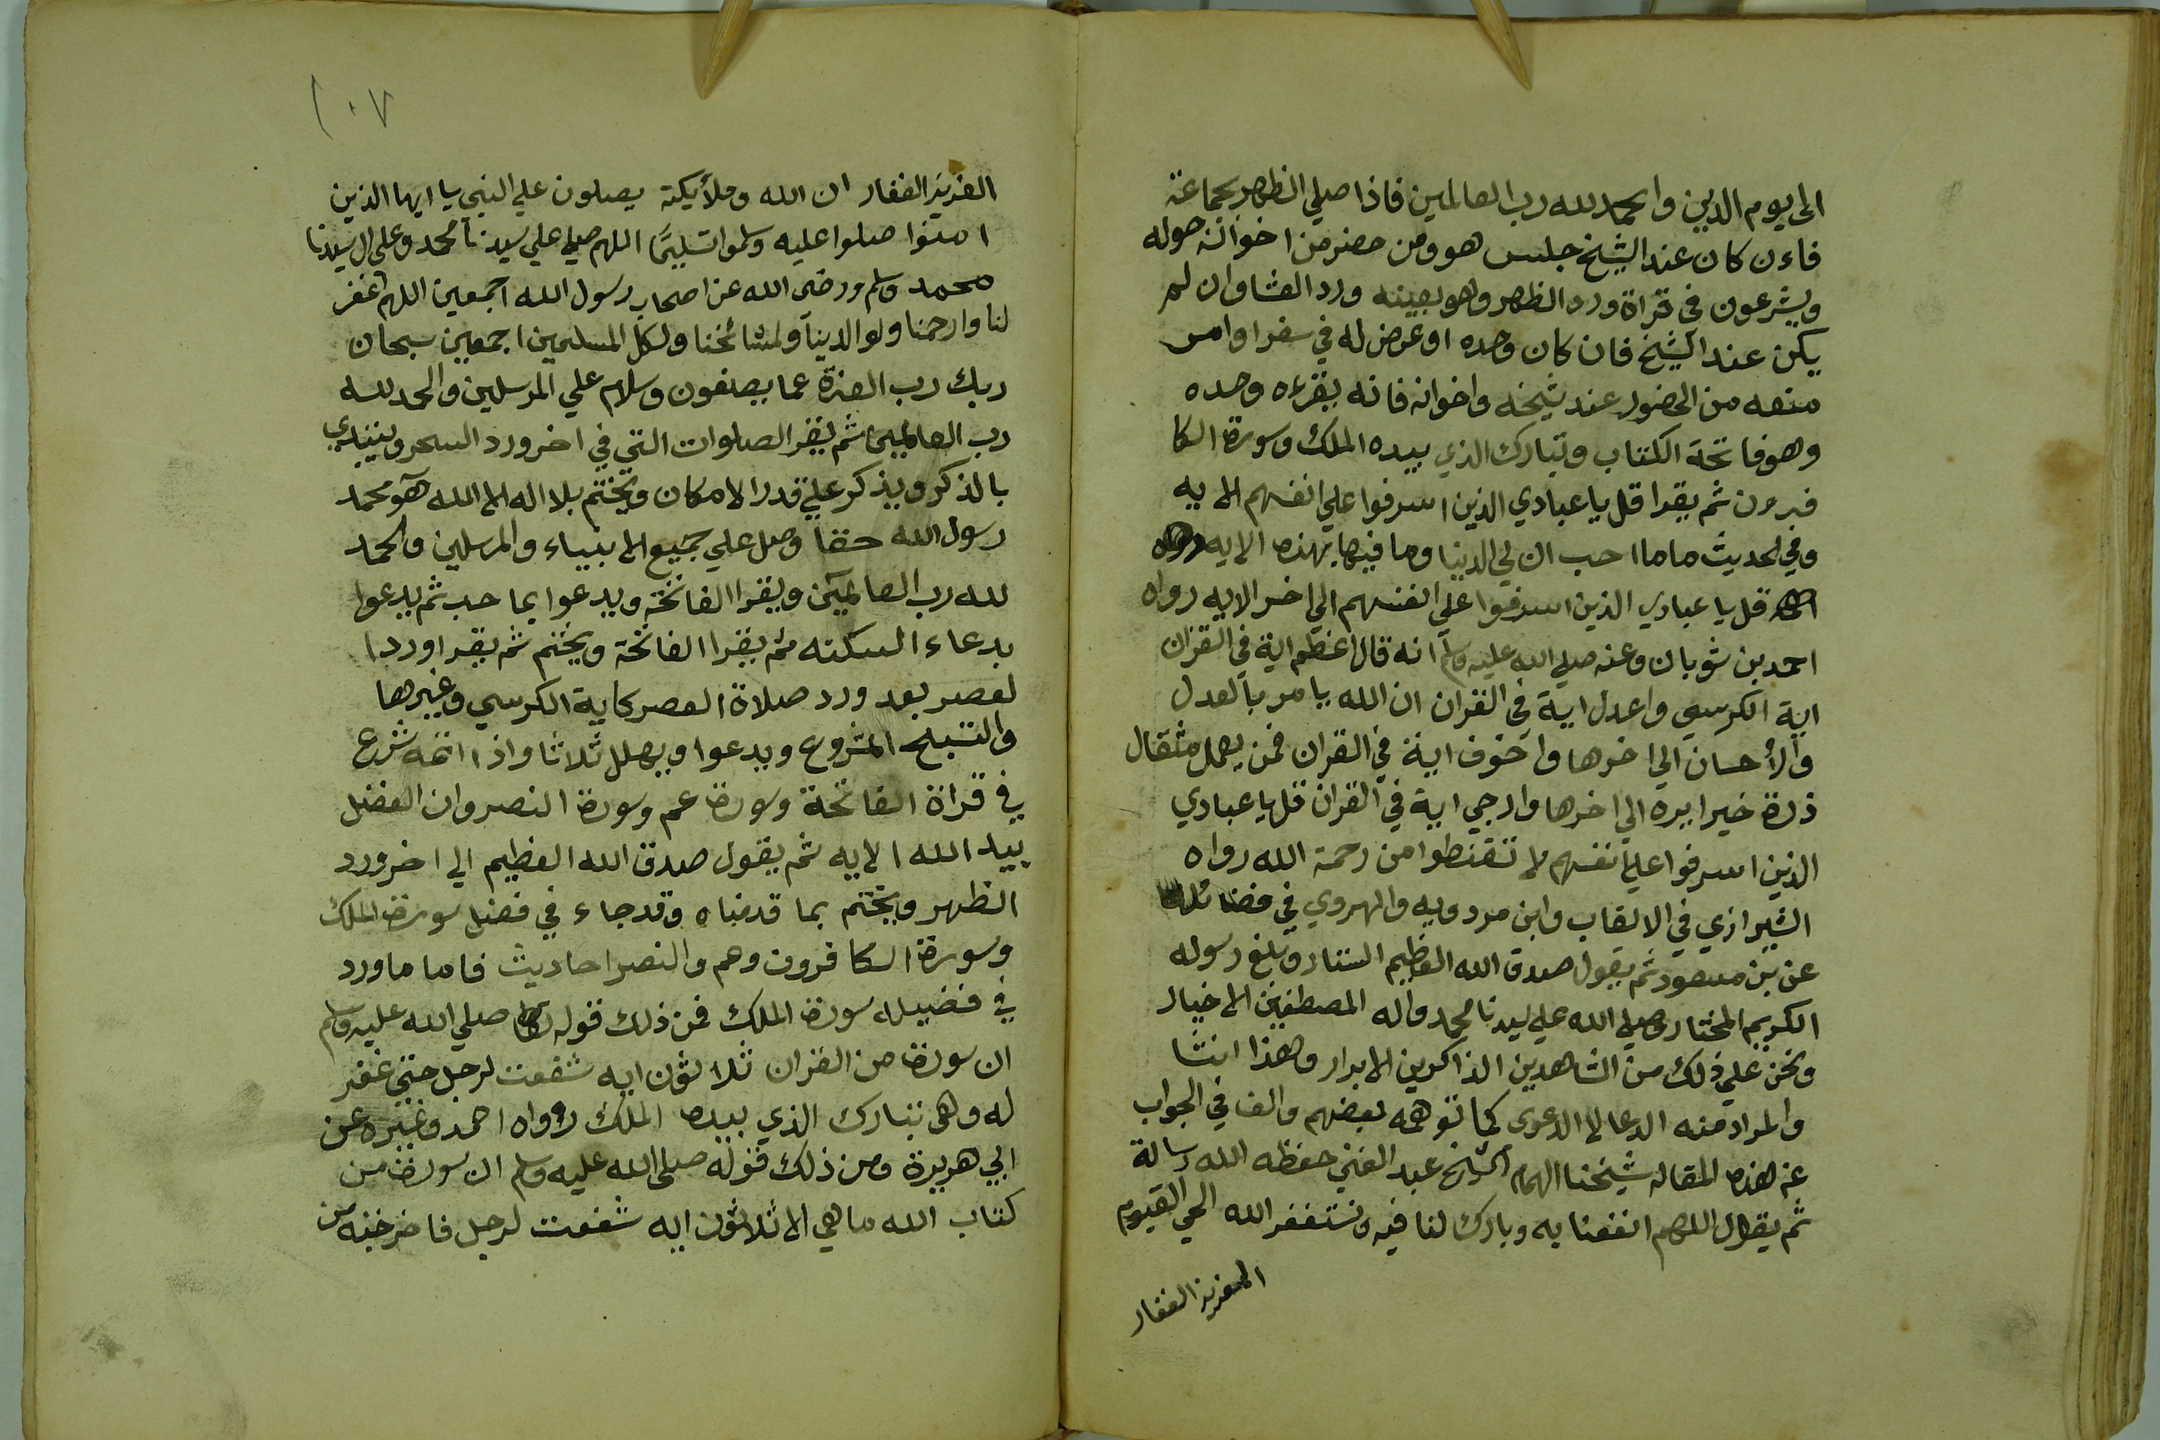 الى يوم الدين والحمد لله رب العالمين فاذا صلي الظهر بجماعة
فاءن كان عند الشيخ جلس هو ومن حضر من اخوانه حوله
ويشرعون في قراة ورد الظهر وهو بعينه ورد العشا وان لم
يكن عند الشيخ فان كان وحده او عرض له في سفر او امر
منعه من الحضور عند شيخه واخوانه فانه يقرءه وحده
وهو فاتحة الكتاب وتبارك الذي بيده الملك وسورة الكا
فرون ثم يقرا قل يا عبادي الذين اسرفوا علي انفسهم الايه
وفي الحديث ماما احب ان لي الدنيا وما فيها بهذه الايه
قل يا عبادي الذين اسرفوا علي انفسهم الي اخر الايه رواه
احمد بن ثوبان وعنه صلي الله عليه وسلم انه قال اعظم اية في القران
اية الكرسي واعدل اية في القران ان الله يامر بالعدل
والاحسان الي اخرها واخوف اية في القران فمن يعمل مثقال
ذرة خيرا يره الي اخرها وارجي اية في القران قل يا عبادي
الذين اسرفوا علي انفسهم لا تقنطوا من رحمة الله رواه
الشيرازي في الالقاب وابن مردويه والهروي في فضائلها
عن بن مسعود ثم يقول صدق الله العظيم الستار وبلغ رسوله
الكريم المختار وصلي الله علي سيدنا محمد واله المصطفين الاخيار
ونحن علي ذلك من الشاهدين الذاكرين الابرار وهذا انشا
والمراد منه الدعا لا الدعوى كما توهمه بعضهم والف في الجواب
عن هذه المقاله شيخنا الهمام الشيخ عبد الغني حفظه الله رسالة
ثم يقول اللهم انفعنا به وبارك لنا فيه ونستغفر الله الحي القيوم
العزيز الغفار
١٠٧
العزيز الغفار ان الله وملأيكته يصلون علي النبي يا ايها الذين
امنوا صلوا عليه وسلموا تسليمًا اللهم صلي علي سيدنا محمد وعلي ال سيدنا
محمد وسلم ورضى الله عن اصحاب رسول الله اجمعين اللهم اغفر
لنا وارحمنا ولوالدينا ولمشائخنا ولكل المسلمين اجمعين سبحان
ربك رب العزة عما يصفون وسلام علي المرسلين والحمد لله
رب العالمين ثم يقرا الصلوات التي في اخر ورد السحر ويبتدي
بالذكر ويذكر علي قدر الامكان ويختم بلا اله الا الله هو محمد
رسول الله حقا وصل علي جميع الانبياء والمرسلين والحمد
لله رب العالمين ويقرا الفاتحة ويدعوا بما حب ثم يدعوا
بدعاء السكته ثم يقرا الفاتحة ويختم ثم يقرا وردا
لعصر بعد ورد صلاة العصر كاية الكرسي وغيرها
والتسبيح المشروع ويدعوا ويهلل ثلاثا واذا اتمه شرع
في قراة الفاتحة وسورة عم وسورة النصر وان الفضل
بيد الله الايه ثم يقول صدق الله العظيم الي اخر ورد
الظهر ويختم بما قدمناه وقد جاء في فضل سورة الملك
وسورة الكافرون وعم والنصر احاديث فاما ما ورد
في فضيله سورة الملك فمن ذلك قوله صلي الله عليه وسلم
ان سورة من القران ثلاثون ايه شفعت لرجل حتي غفر
له وهى تبارك الذي بيده الملك رواه احمد وغيره عن
ابي هريرة ومن ذلك قوله صلى الله عليه وسلم ان سورة من
كتاب الله ما هي الا ثلاثون ايه شفعت لرجل فاخرجته من